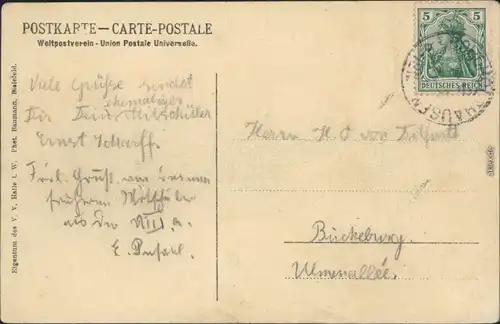 POSTKARTE — CARTE-POSTALE
Weltpostverein - Union Postale Universelle.
5 5
DEUTSCHES REICH
HAUSEN
Viele Grüße sendet
Dir Dein ehemaliger Mitschüler
Ernst Scharff.
Frdl. Gruß von deinem
früheren Mitschüler
aus der VIII a.
E.
Herrn H. O von
Bückeburg.
Ulmenallée.
Eigentum des V. V. Halle i. W. Phot. Baumann, Bielefeld.